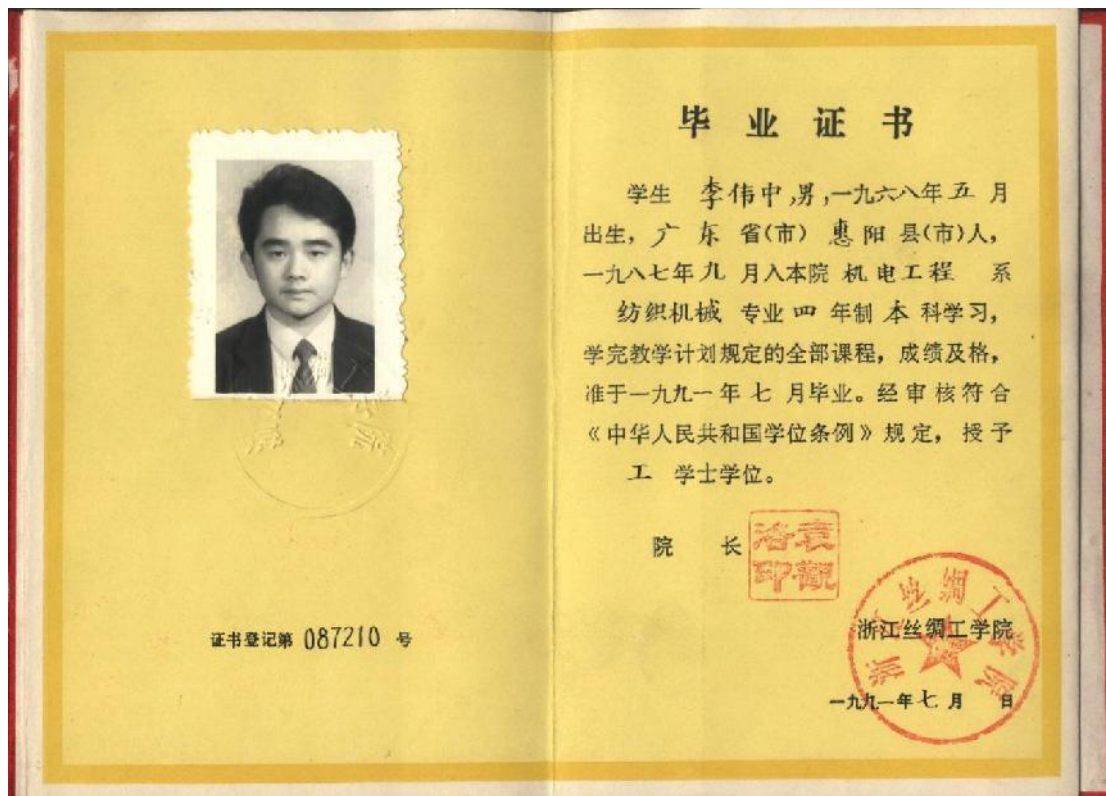 证书登记第 087210 号
毕业证书
学生 李伟中,男,一九六八年五月
出生，广东省(市)惠阳县(市)人，
一九八七年九月入本院机电工程系
纺织机械专业四年制本科学习，
学完教学计划规定的全部课程，成绩及格，
准于一九九一年七月毕业。经审核符合
《中华人民共和国学位条例》规定，授予
工学士学位。
院长
袁观洛印
浙江丝绸工学院
浙江丝绸工学院
一九九一年七月 日